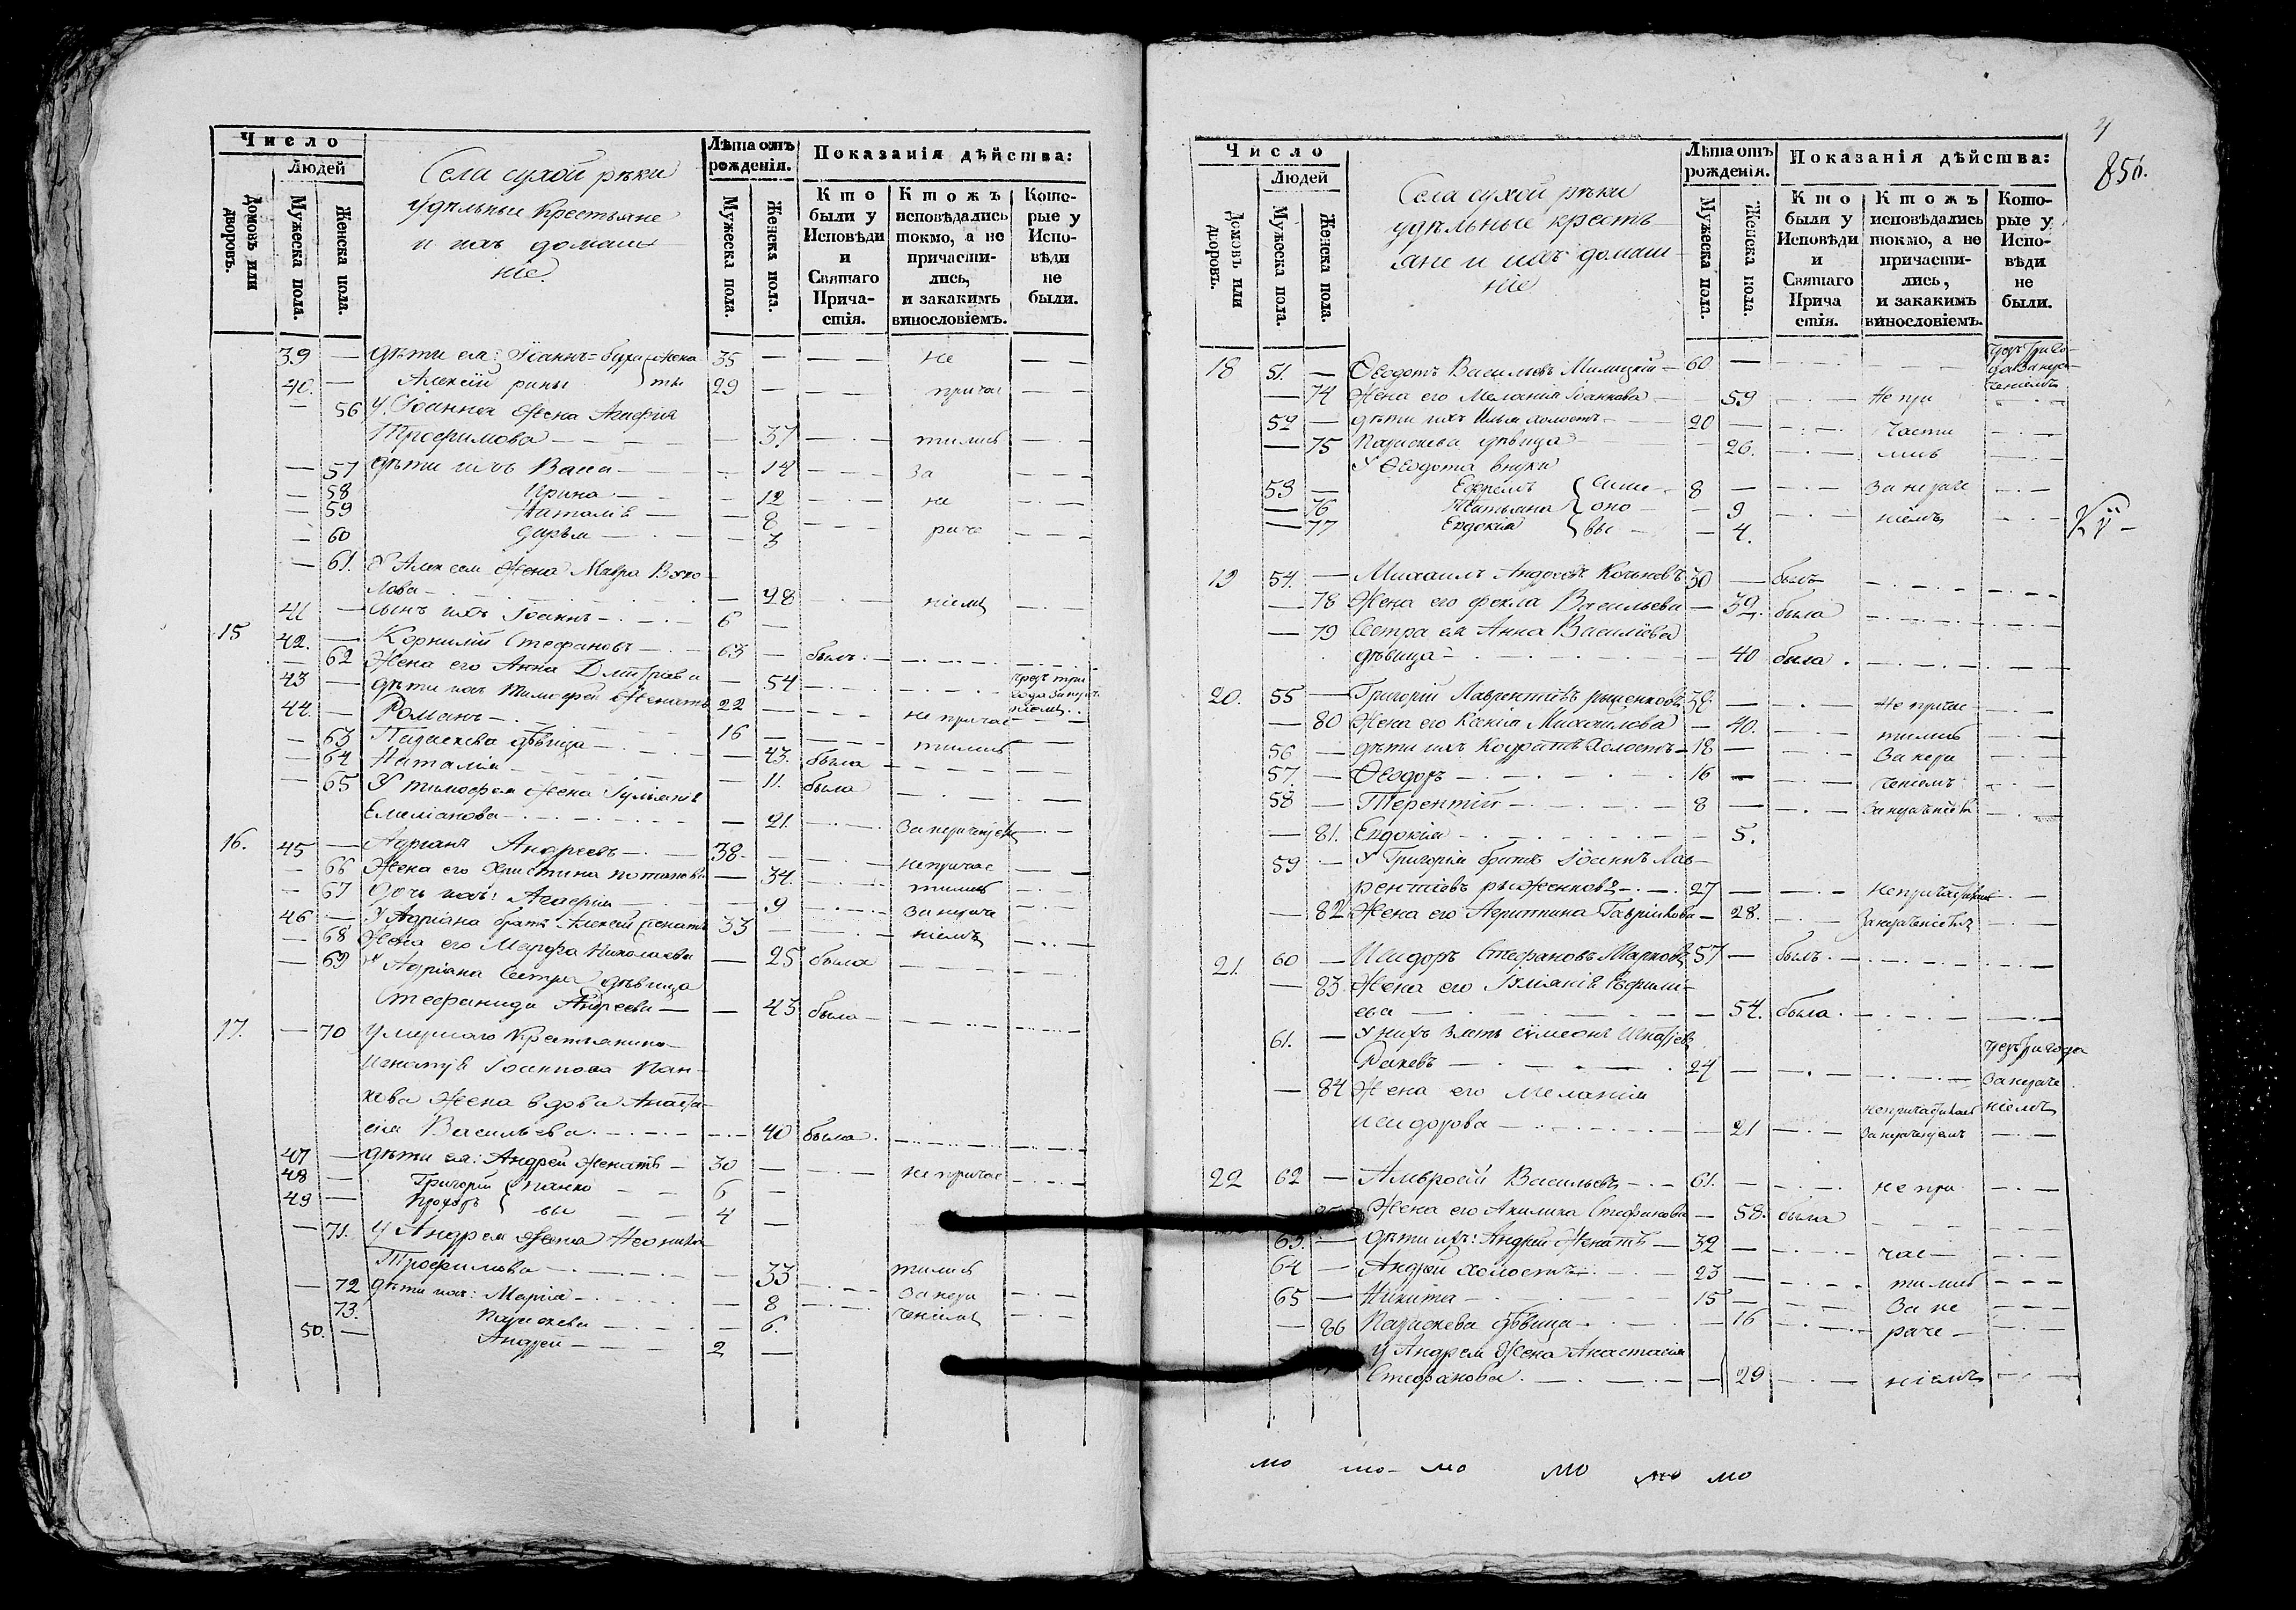 Число
Людей
Домовъ или дворовъ.
Мужеска пола.
Женска пола.
Села сухой рѣки
удѣльные крестьяне
и ихъ домаш
ніе.
Лѣта отъ рожденія.
Мужеска пола.
Женска пола.
Показанія дѣйства:
Кто были у Исповѣди и Святаго Прича-стія.
Ктожъ исповѣдались токмо, а не причасти-лись, и закакимъ винословіемъ.
Кото-рые у Испо-вѣди не были.
39 — дѣти ея: Іоаннъ 35 — — — не — —
40. — Алексій 29 — — причас — —
— 56 У Іоанна жена Агафія
Трофимова — — 37 — — тились — —
— 57 дѣти ихъ Васа — — 14 — — за — —
— 58 Ирина — — 12 — — не — —
— 59 Наталія — — 8
— 60 Дарья — — 3 — — раче — —
— 61. У Алексея жена Мавра Вуко
лова — — 28 — — ніемъ —
41 — сынъ ихъ Іоаннъ — 6 —
15 42. — Корнилій Стефановъ — 63 — былъ. — —
— 62 Жена его Анна Дмитріева — 54 — —
43 — дѣти ихъ Тимофей женатъ 22 — — —
44. — Романъ — 16 — — не причас — —
— 63 Параскева дѣвица — — 43. была тились —
— 64 Наталія — — 11. была — —
— 65 У Тимофея жена Іуліанія
Емеліанова — — 21. — —
16. 45 — Адріанъ Андреевъ — 38. — — непричас
— 66 Жена его Христина Потапова — 34. — — тились — —
— 67 дочь ихъ: Агафія — — 9 — — за нераче — —
46 — У Адріана братъ Алексей женатъ 33 — — ніемъ — —
— 68 Жена его Марфа Николаева — 25 была — —
— 69 У Адріана сестра дѣвица
Стефанида Андреева — — 43 была — —
17. — 70 Умершаго крестьянина
Игнатія Іоаннова Пан-
кова жена вдова Анаста-
сія Васильева — — 40 была. — —
47 — дѣти ея: Андрей женатъ — 30 — — не причас — —
48 — Григорій } панко — 6 —
49 — Прохоръ } вы — 4 —
— 71. У Андрея жена
Трофимова — — 33 — тились
— 72 дѣти ихъ: Марія — — 8 — за нера — —
73. Параскева — — 6. — ченіемъ — —
50. — Андрей — 2 —
4
850.
Число
Людей
Домовъ или дворовъ.
Мужеска пола.
Женска пола.
Села сухой рѣки
удѣльные кресть
яне и ихъ домаш
ніе
Лѣта отъ рожденія.
Мужеска пола.
Женска пола.
Показанія дѣйства:
Кто были у Исповѣди и Святаго Прича стія.
Ктожъ исповѣдались токмо, а не причасти-лись, и закакимъ винословіемъ.
Кото-рые у Испо-вѣди не были.
18 51. — Ѳеодотъ Васильевъ — 60 — — —
— 74 Жена его Меланія Іоаннова — 59 — — Не при — —
52 — дѣти ихъ Илья холостъ — 20 — — части — —
— 75 Параскева дѣвица — — 26. — — лись — —
У Ѳеодота внуки
53 — Ефремъ { Симе — 8 — — — за нераче — —
— 76 Татьяна { оно — — 9 — — ніемъ — —
— 77 Евдокія { вы — — 4.
19 54. — Михаилъ Андреевъ 30 — былъ — —
— 78 Жена его Фекла Васильева — 32. была — —
— 79 Сестра ея Анна Василіева
дѣвица — — 40 была. — —
20. 55 — Григорій Лаврентіевъ — — Не причас — —
— 80 Жена его Ксенія Михайлова — 40. — — тились — —
56 — дѣти ихъ Кодратъ холостъ — 18 — — — за нера — —
57. — Ѳеодоръ — 16 — — — ченіемъ — —
58 — Терентій — 8 — — — — —
— 81. Евдокія — — 5.
59 — У Григорія братъ Іоаннъ Лав-
рентіевъ рыженковъ — 27 — — — — —
— 82 Жена его Агриппина Гаврилова — 28. — — — —
21. 60 — Исидоръ Стефановъ Марковъ 57 — былъ — —
— 83. Жена его Іуліанія Ефимі-
ева — — 54. была. — —
61. — У нихъ зять Симеонъ
— 24 — — — чрезъ три года
— 84 Жена его Меланія за нераче
Исидорова — — 21 — — — — ніемъ
22 62 — Амвросій Васильевъ — 61. — — не при — —
Жена его Акилина Стефанова — 58. была — —
63. — дѣти ихъ: Андрей женатъ — 32 — — час — —
64 — Андрей холостъ — 23 — — тились — —
65 — Никита — 15 — — за не — —
— 86 Параскева дѣвица — — 16 — — раче — —
У Андрея жена Анастасія
Стефанова. — — 29 — — ніемъ — —
мо мо мо мо мо мо